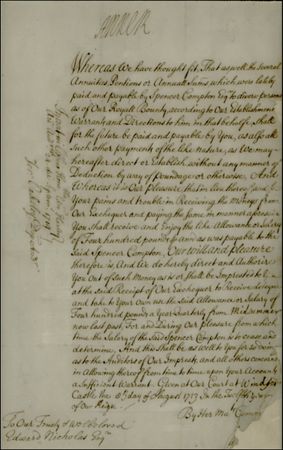 ANNE R
Whereas We have thought fit, That as well the several
Annuities, Pentions or Annuall Sums which were lately
paid and payable by Spencer Compton Esqr. to divers persons
as of Our Royall Bounty according to Our Establishment
Warrants and Directions to him in that behalf, Shall
for the future be paid and payable by You, as also all
Such other payments of the like nature, as We may
hereafter direct or Establish without any manner of
Deduction by way of poundage or otherwise, And
Whereas it is Our Pleasure that in
Your pains and trouble in Receiving the Moneys from
Our Exchequer and paying the same in manner aforesaid
You Shall receive and Enjoy the like Allowance or Salary
of Four hundred pounds p ann as was payable to the
said Spencer Compton, Our will and pleasure
therefore is, And We do hereby direct and Authorize
You Out of Such Money as is or Shall be Imprested to
at the said Receipt of Our Exchequer to Receive
and take to Your own use the said Allowance or Salary of
Four hundred pounds a year Quarterly from Midsummer
now last past, For and During Our Pleasure from which
time the Salary of the said Spencer Compton is to cease and
determine. And this Shall be as well to You for
as to the Auditors of Our Imprests, and all others concerned
in Allowing thereof from time to time upon Your Accounts
a Sufficient Warrant. Given at Our Court at Windsor
Castle the day of August 1713 In the Twelfth Year
of Our Reign
By Her Mats. Command
To Our Trusty & Wellbeloved
Edward Nicholas Esqr.